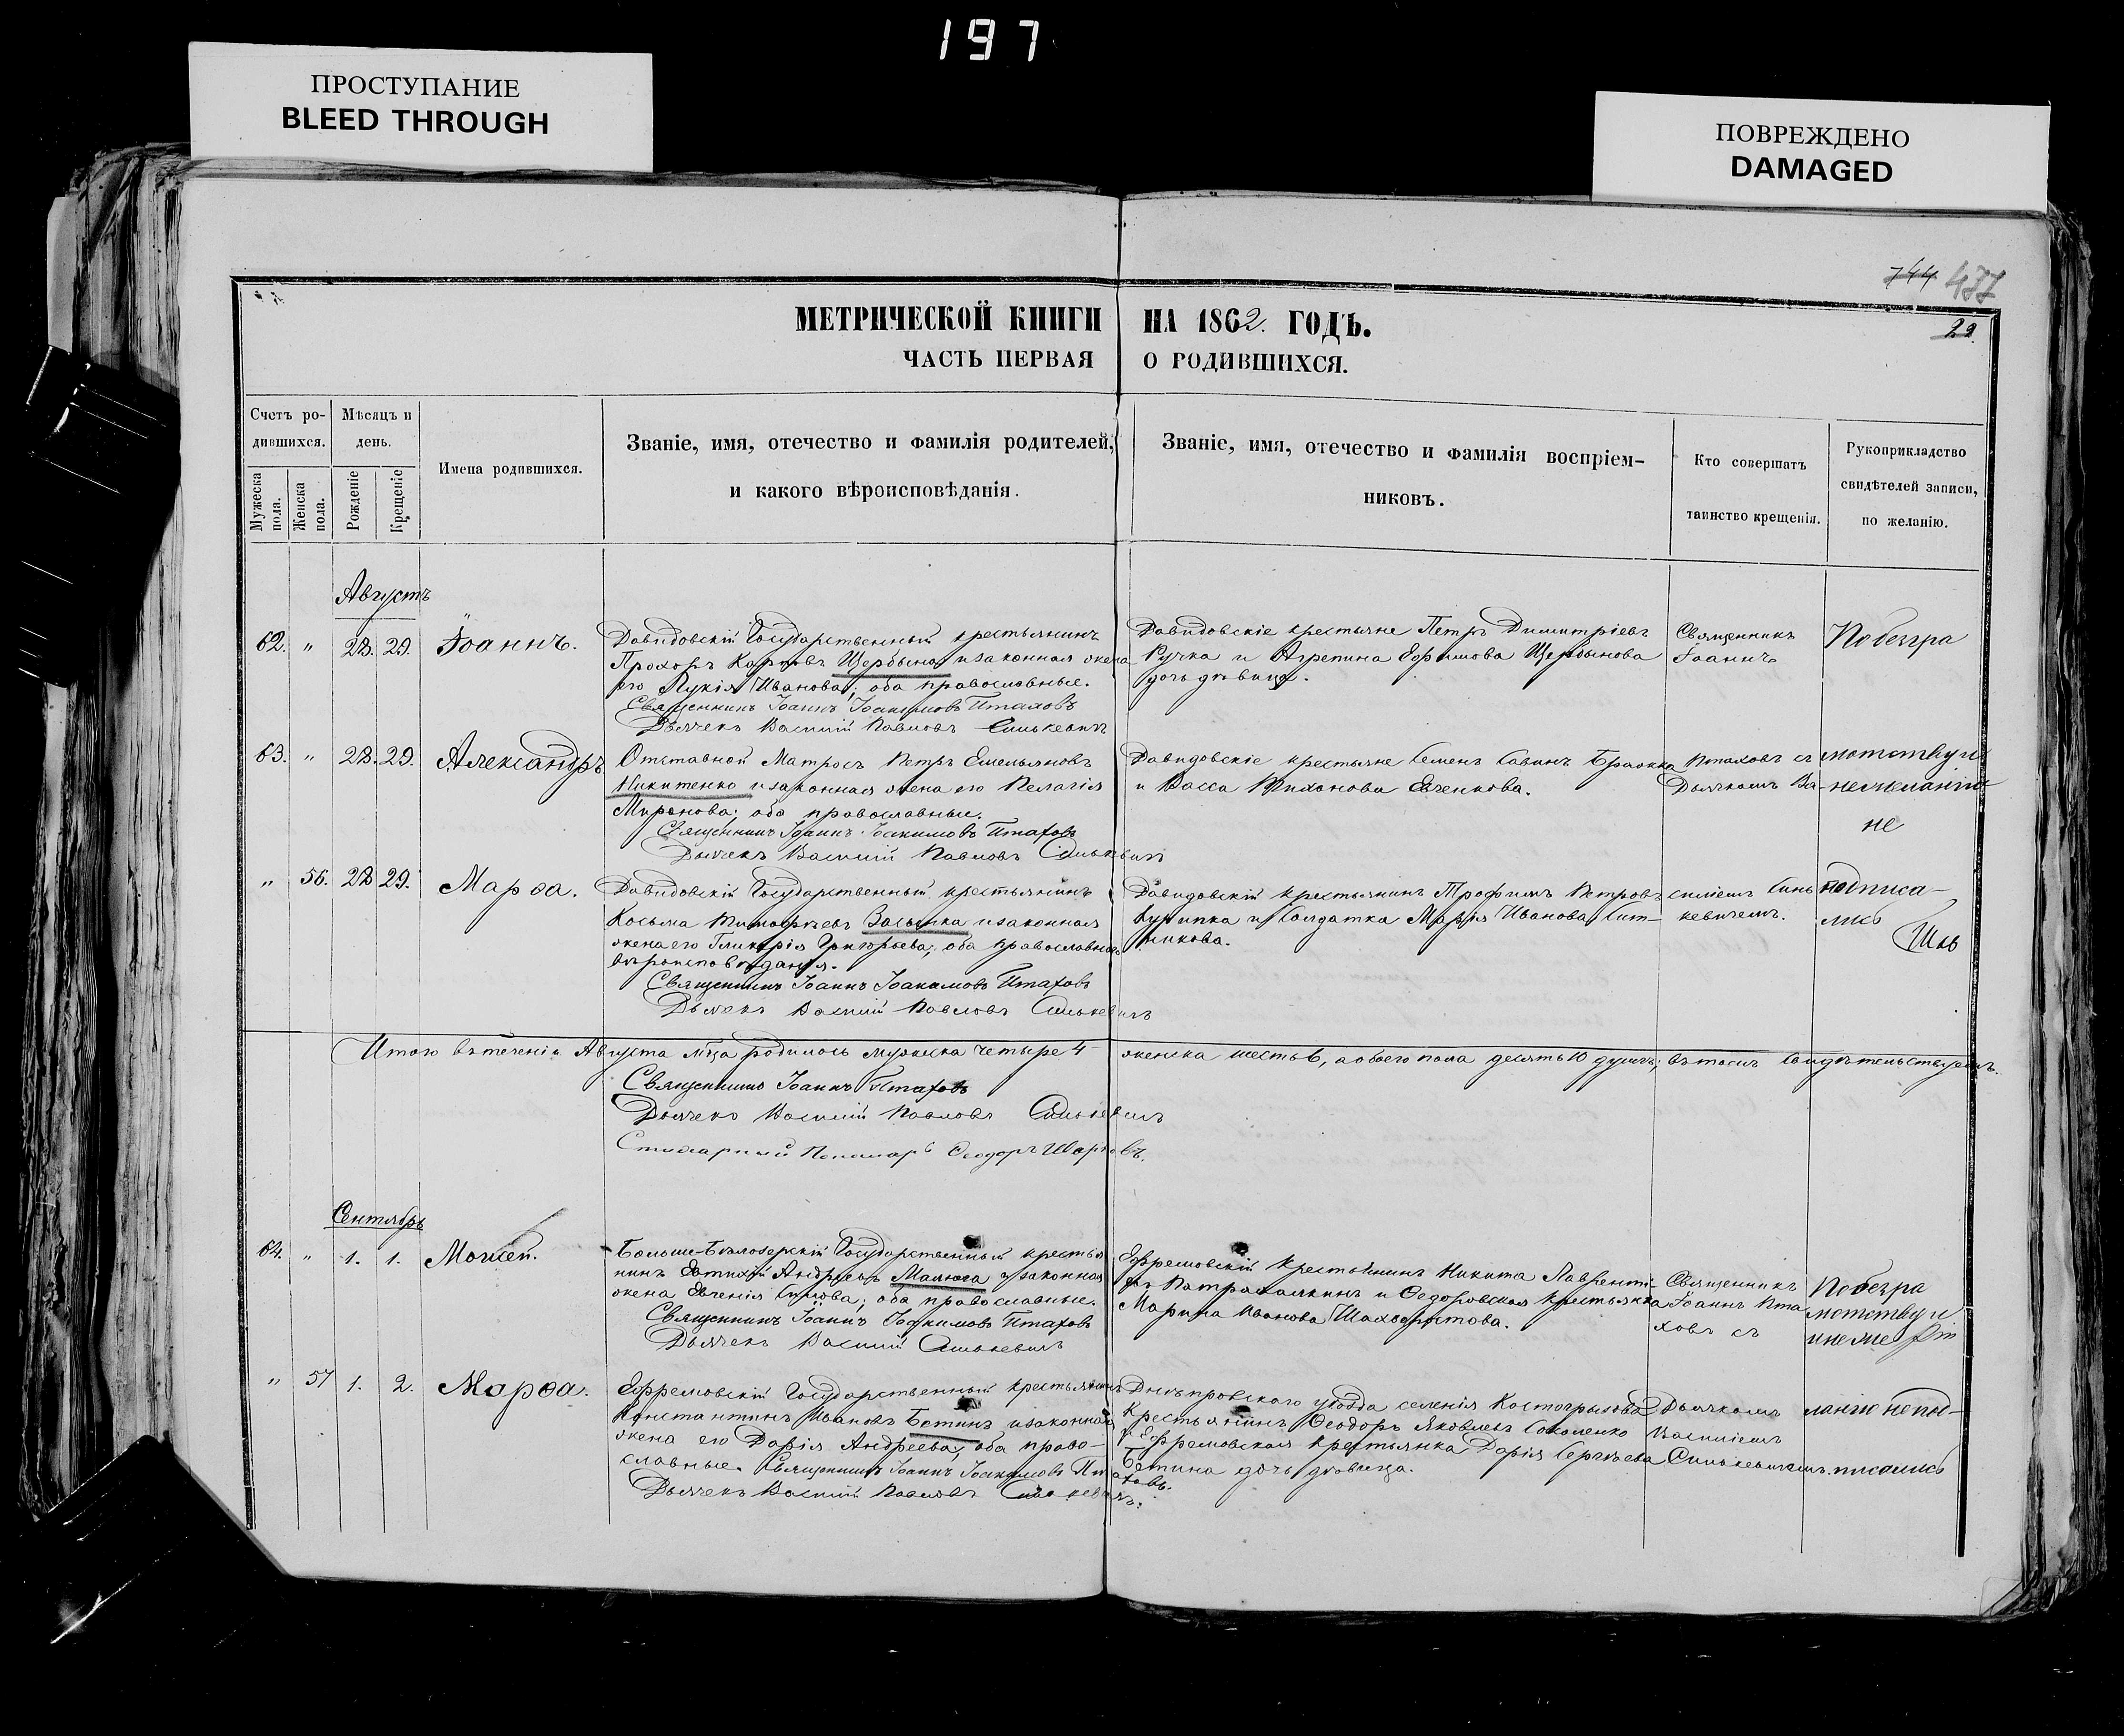 197
ПРОСТУПАНИЕ
BLEED THROUGH
ПОВРЕЖДЕНО
DAMAGED
744 437
22.
МЕТРИЧЕСКОЙ КНИГИ НА 1862. ГОДЪ.
ЧАСТЬ ПЕРВАЯ О РОДИВШИХСЯ.
Счетъ ро-
дившихся.
Мужеска пола.
Женска пола.
Мѣсяцъ и
день.
Рожденіе
Крещеніе
Имена родившихся.
Званіе, имя, отечество и фамилія родителей,
и какого вѣроисповѣданія.
Званіе, имя, отечество и фамилія воспріем-
никовъ.
Кто совершалъ
таинство крещенія.
Рукоприкладство
свидѣтелей записи,
по желанію.
Августъ
62. " 28. 29. Іоаннъ.
Давидовскій Государственный крестьянинъ
Прохоръ Карповъ Щербына и законная жена
его Лукія Иванова; оба православные.
Священникъ Іоаннъ Іоакимовъ Птаховъ
Дьячекъ Василій Павловъ Синькевичъ
Давидовскіе крестьяне Петръ Димитріевъ
Ручка и Агрепина Ефимова Щербынова
дочь дѣвица.
Священникъ
Іоаннъ
По безгра
63. " 28. 29. Александръ
Отставной Матросъ Петръ Емельяновъ
Никитенко и законная жена его Пелагія
Миронова; оба православные.
Священникъ Іоаннъ Іоакимовъ Птаховъ
Дьячекъ Василій Павловъ Синькевичъ
Давидовскіе крестьяне Семенъ Савинъ
и Васса Тихонова Евченкова.
Птаховъ съ
Дьячкомъ Ва-
мотству и
нежеланію
не
" 56. 28 29. Марѳа.
Давидовскій Государственный крестьянинъ
Косьма Тимофѣевъ и законная
жена его Гликерія Григорьева; оба православнаго
вѣроисповѣданія.
Священникъ Іоаннъ Іоакимовъ Птаховъ
Дьячекъ Василій Павловъ Синькевичъ
Давидовскій крестьянинъ Трофимъ Петровъ
и Солдатка Марѳа Иванова Сит-
никова.
силіемъ Синь
кевичемъ.
подписа-
лись
Итого въ теченіи Августа мѣца родилось мужеска четыре 4 женска шесть 6, а обоего пола десять 10 душъ; въ томъ свидѣтельствуемъ.
Священникъ Іоаннъ Птаховъ
Дьячекъ Василій Павловъ Синькевичъ
Стихарный Пономарь Ѳеодоръ
Сентябрь
64. " 1. 1. Моисей.
Больше-Бѣлозерскій Государственный крестья
нинъ Евтихій Андреевъ Малюга и законная
жена Евгенія; оба православные.
Священникъ Іоаннъ Іоакимовъ Птаховъ
Дьячекъ Василій Синькевичъ
Ефремовскій крестьянинъ Никита Лавренті-
евъ и Ѳедоровская крестьянка
Марина Иванова Шахворостова.
Священникъ
Іоаннъ Пта
ховъ съ
По безгра
мотству и
" 57 1. 2. Марѳа.
Ефремовскій Государственный крестьянинъ
Константинъ Ивановъ Бетинъ и законная
жена его Дарія Андреева, оба право-
славные. Священникъ Іоаннъ Іоакимовъ Птаховъ.
Дьячекъ Василій Павловъ Синькевичъ.
Днѣпровскаго уѣзда селенія Костогрызова
крестьянинъ Ѳеодоръ Яковлевъ Соколенко
и Ефремовская крестьянка Дарія Сергѣева
Бетина дочь дѣвица.
Дьячкомъ
Василіемъ
Синькевичемъ.
ланію не под-
писались